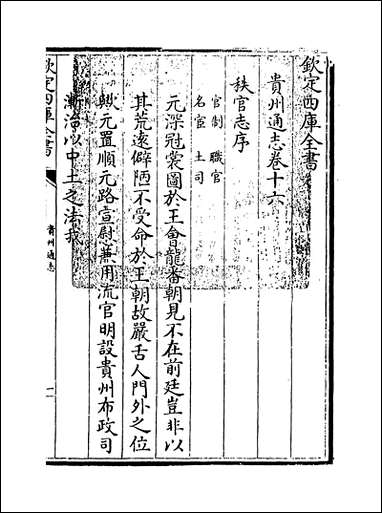 欽定四庫全書
貴州通志卷十六
秩官志序
官制　職官
名宦　土司
元深冠裳圖於王會龍番朝見不在前廷豈非以
其荒遠僻陋不受命於王朝故嚴舌人門外之位
歟元置順元路宣慰兼用流官明設貴州布政司
漸治以中土之法我
欽定四庫全書
貴州通志
一